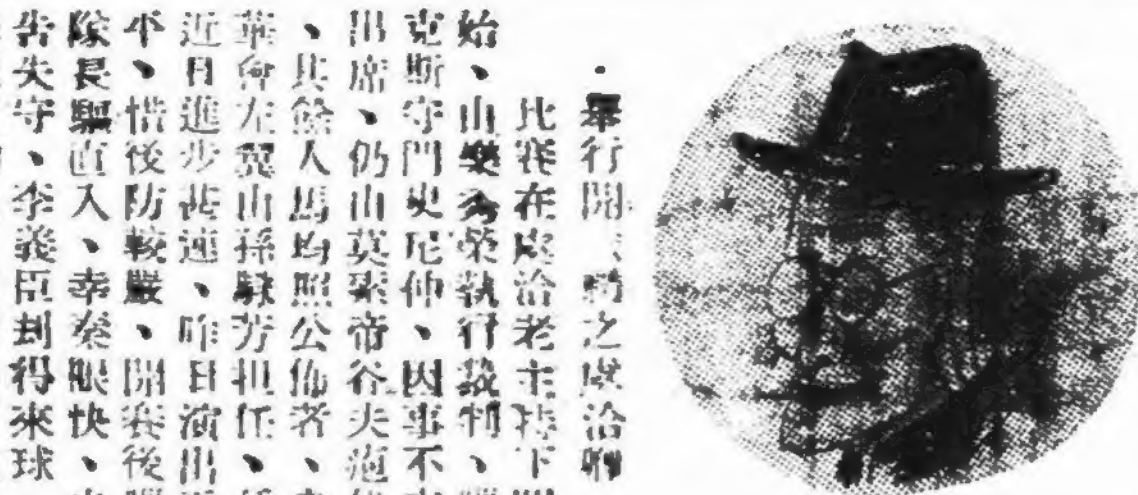 ·舉行開、禮之虞洽卿
比賽在虞洽老主持下開
始、由樂秀榮執行裁判、
克斯守門史尼仲、因事不
出席、仍由莫索帝谷夫
、其餘人馬均照公佈者、
華會左翼由孫錦芳担任、
近日進步甚速、昨日演出
平、惜後防較嚴、開賽後
隊長驅直入、幸秦眼快、
告失守、李義臣刦得來球